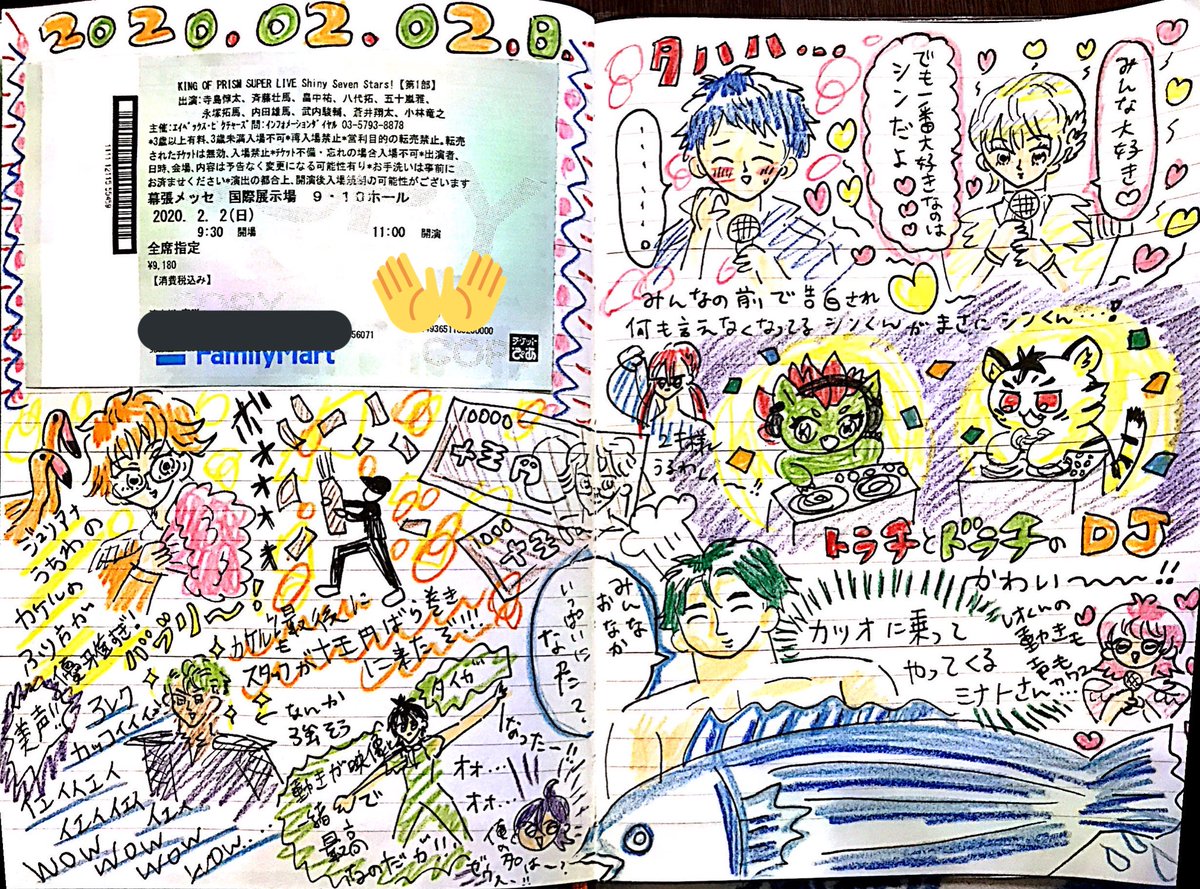 2020.02.02.日.
KING OF PRISM SUPER LIVE Shiny Seven Stars!【第1部】
出演:寺島惇太、斉藤壮馬、畠中祐、八代拓、五十嵐雅、
永塚拓馬、内田雄馬、武内駿輔、蒼井翔太、小林竜之
主催:エイベックス・ピクチャーズ 問:インフォメーションダイヤル 03-5793-8878
*3歳以上有料、3歳未満入場不可*再入場禁止*営利目的の転売禁止。転売
されたチケットは無効、入場禁止*チケット不備・忘れの場合入場不可*出演者、
日時、会場、内容は予告なく変更になる可能性有り*お手洗いは事前に
お済ませください*演出の都合上、開演後入場規制の可能性がございます
幕張メッセ 国際展示場 9・10ホール
2020. 2. 2(日)
9:30 開場 11:00 開演
全席指定
¥9,180
【消費税込み】
56071
FamilyMart
チケットぴあ
ジュリアナ
うちわの
カケルの
ふり方が
ガオオオ
10000
十王円
1000
十王
カケル最後に
スタッフが十王円ばら巻き
に来たぞ!!!
美声!!
アレク
カッコイイ
イエイイエイ
イエイイエイ
イエイ
WOW WOW WOW WOW...
なんか
強そう
タイガ
動きが映像と
絡んで
最高
なのだが!!
なったー!!
オォ...
オォ...
俺の名は〜?
ゼウスー!!
タハハ...
みんな大好き♡
でも一番大好きなのは
シンだよ♡
・・・・・・
・・・・。
みんなの前で告白され
何も言えなくなってるシンくんがまさにシンくん…!
うるわし〜!!
トラチとドラチのDJ
かわい〜〜〜!!
みんな
おなか
いっぱいに
なった?
カツオに乗って
やってくる
ミナトさん…
レオくんの
動きも
声も